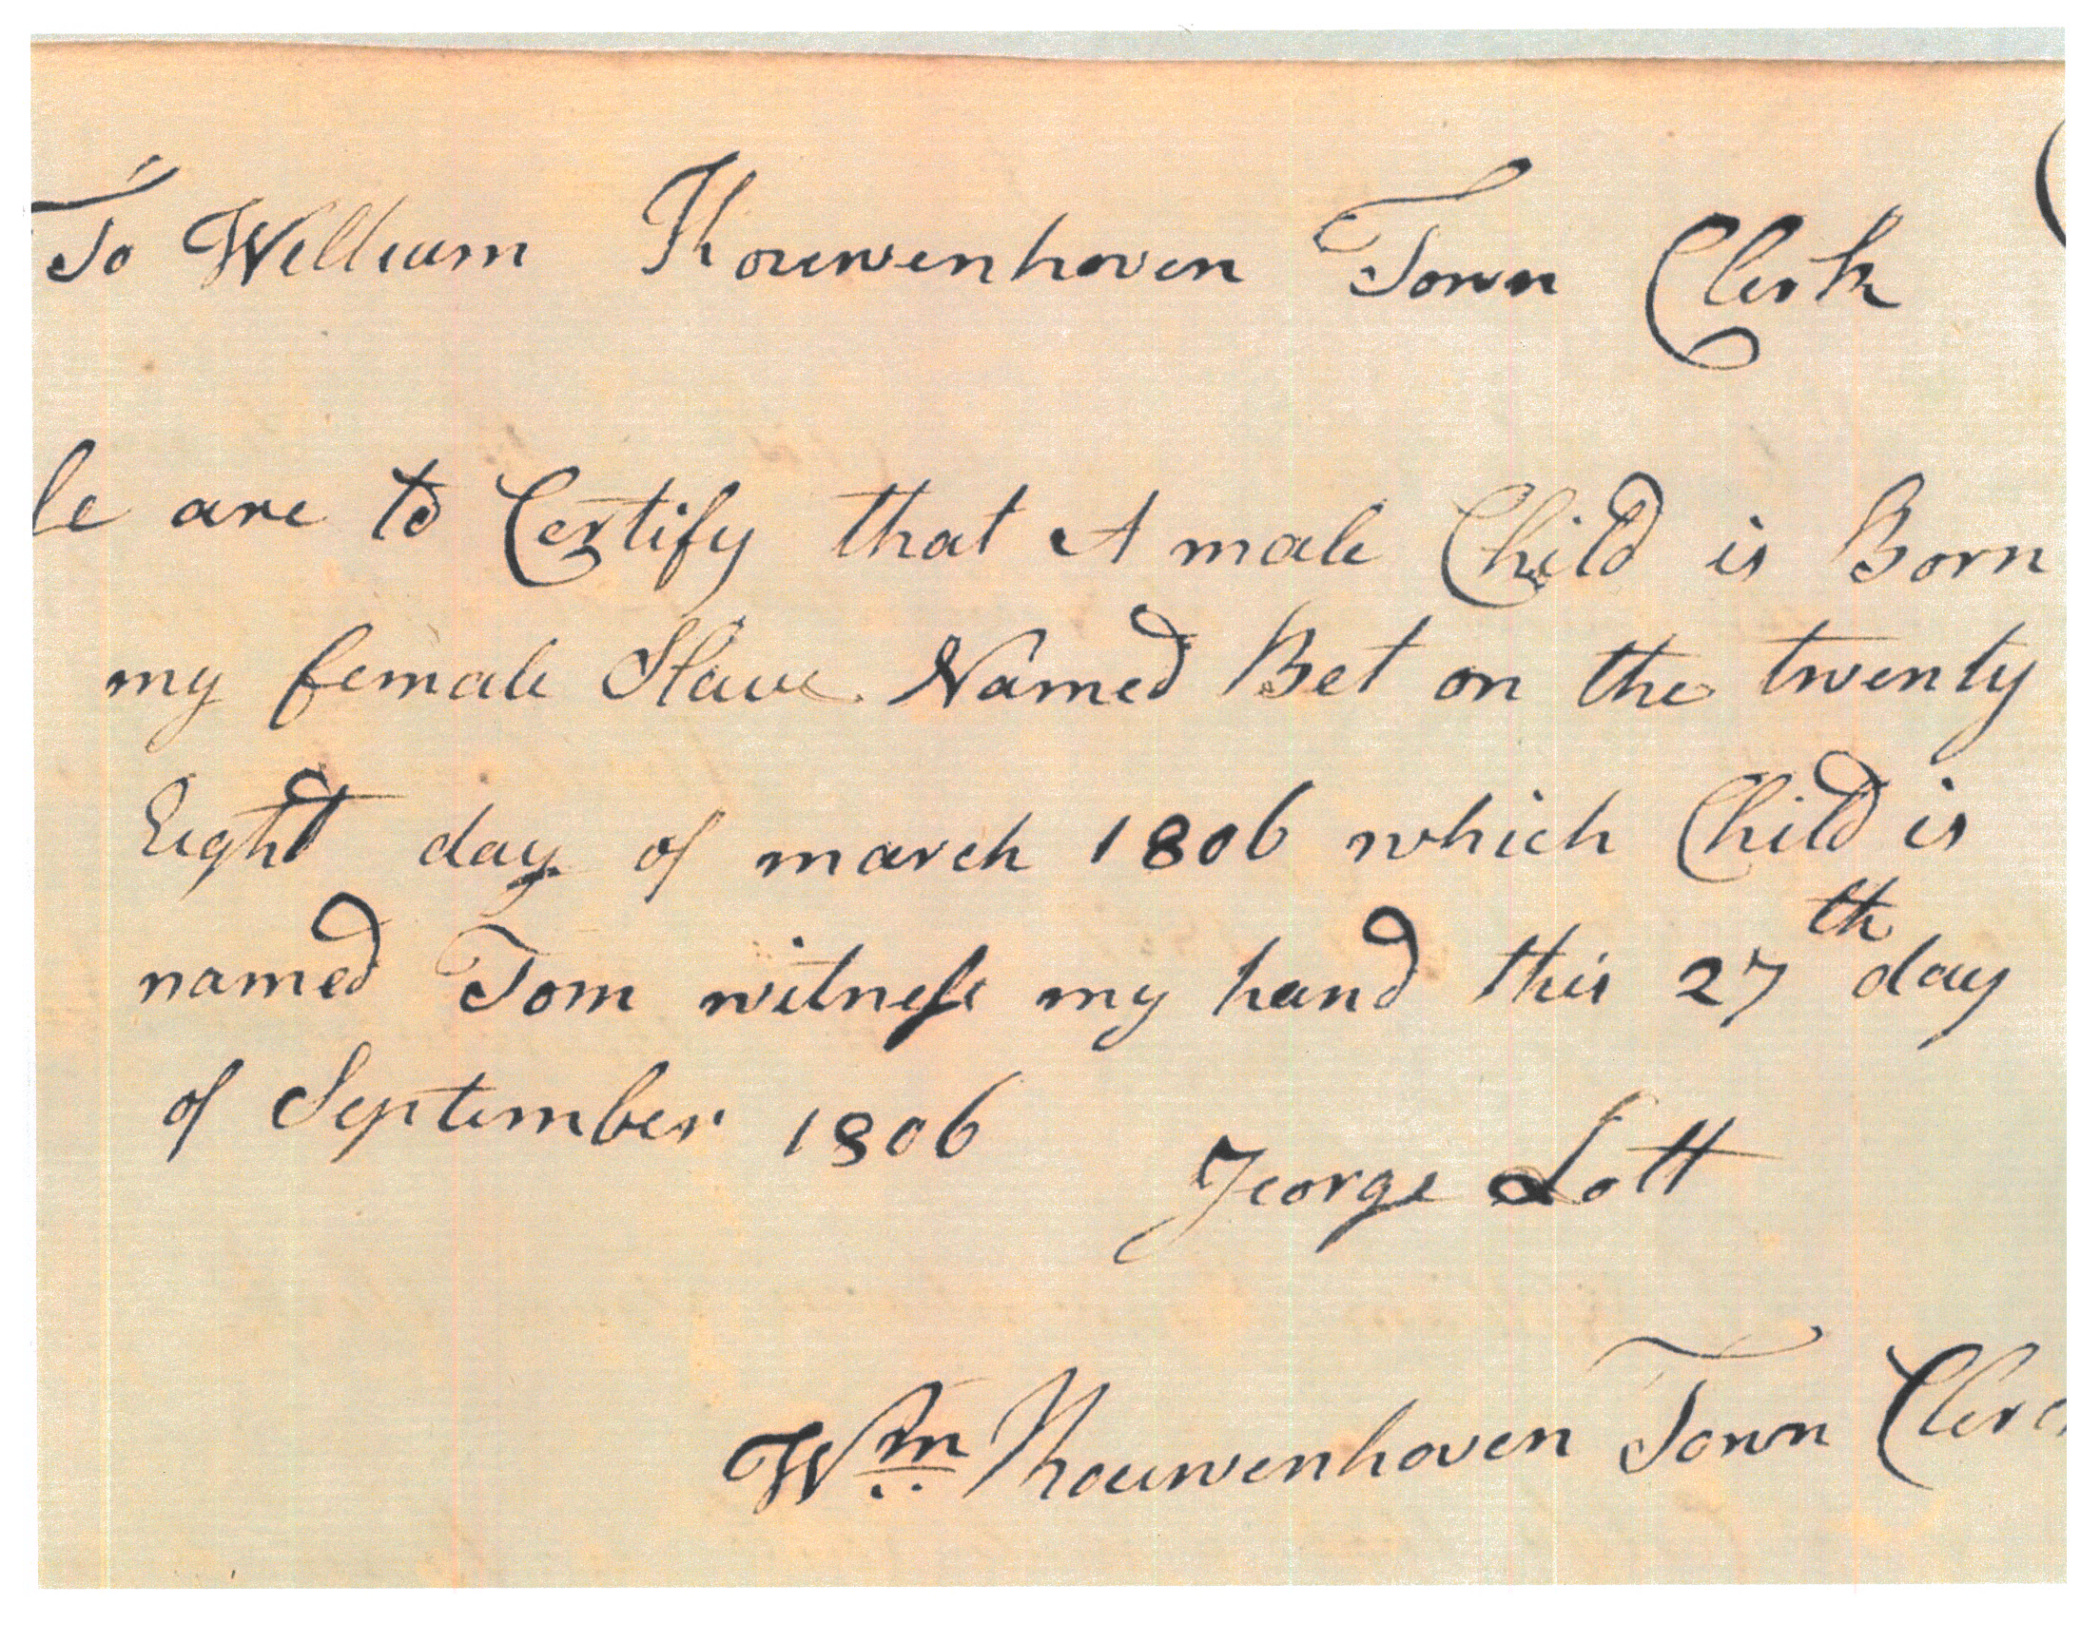 To William Kouwenhoven Town Clerk
le are to Certify that A male Child is Born
my female Slave Named Bet on the twenty
Eight day of march 1806 which Child is
named Tom witness my hand this 27th day
of September 1806
George Lott
Wm Kouwenhoven Town Cler